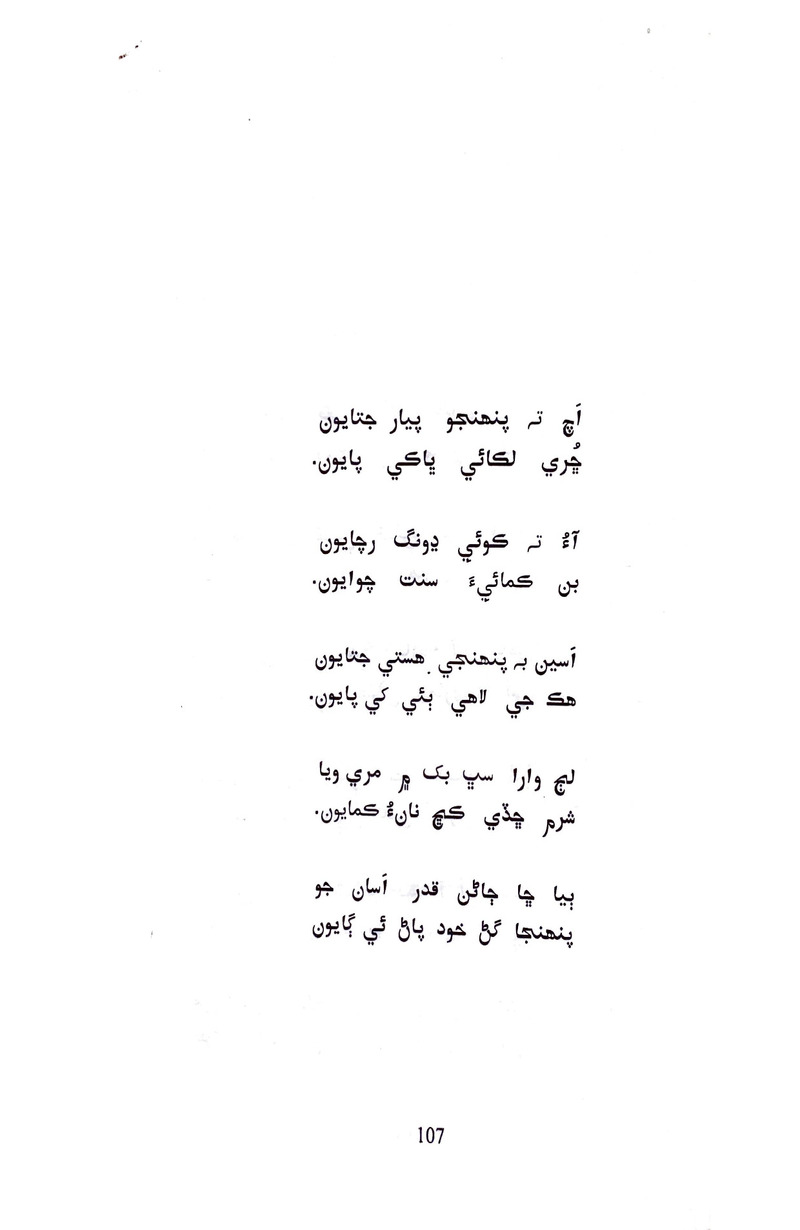 اَچ ته پنهنجو پيار جتايون
ڇُري لڪائي ڀاڪي پايون.
آءُ ته ڪوئي ڍونگ رچايون
بن ڪمائيءَ سنت چوايون.
اَسين به پنهنجي هستي جتايون
هڪ جي لاهي ٻئي کي پايون.
لڄ وارا سڀ بک ۾ مري ويا
شرم ڇڏي ڪڇ نانءُ ڪمايون.
ٻيا ڇا ڄاڻن قدر اَسان جو
پنهنجا گڻ خود پاڻ ئي ڳايون
107